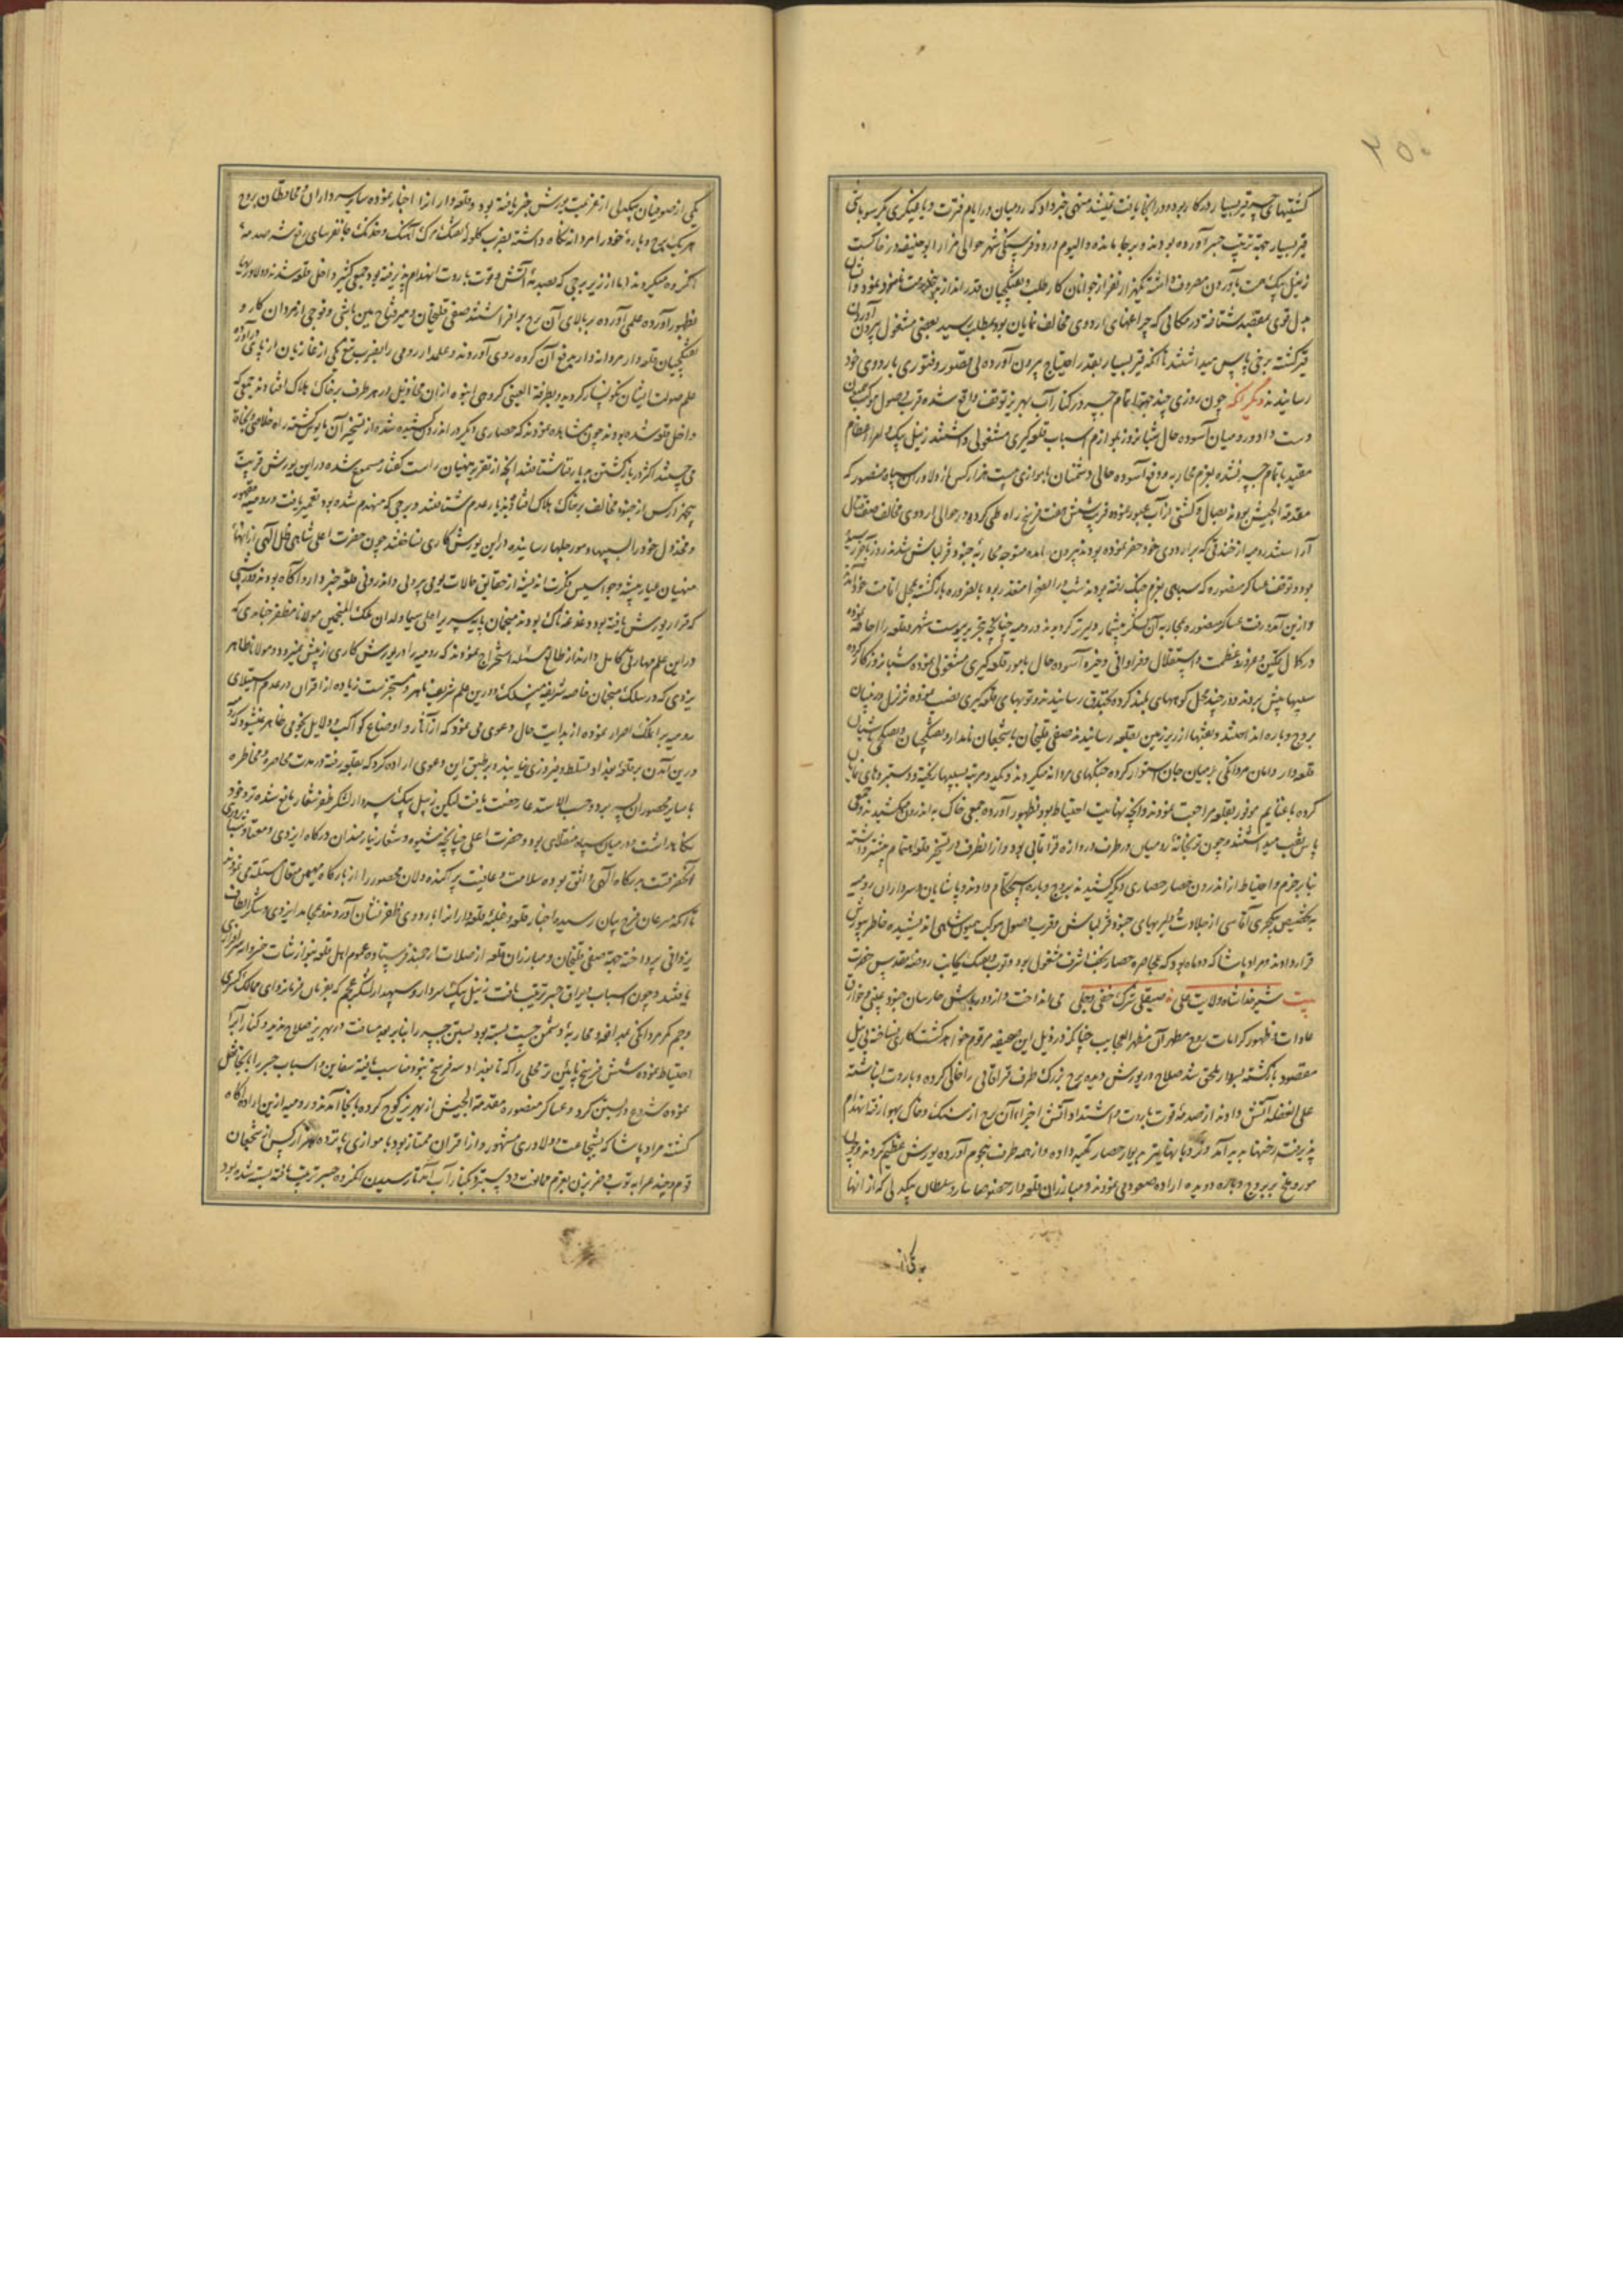 ۲۵۰
کشتیهای جسر قیر بسیار در کار بود و در انجا یافت نمیشد منهی خبر داد که رومیان در ایام فترت و یاغیگری بکر سوباشی
قیر بسیار جهة ترتیب جسر آورده بودند و بر جا مانده و الیوم در دو فرسنگی شهر حوالی مزار ابو حنیفه در خاکست
زینل بیک همت بآوردن مصروف داشته یکهزار نفر از جوانان کار طلب و تفنگچیان قدر انداز بدین خدمت نامزد نمود و ایشان
بدل قوی بمقصد شتافته در مکانی که چراغهای اردوی مخالف نمایان بود بمطلب رسید بعضی مشغول بیرون آوردن
قیر گشته برخی پاس میداشتند تا آنکه قیر بسیار بقدر احتیاج بیرون آورده بی قصور و فتوری باردوی خود
رسانیدند دیگر آنکه چون روزی چند جهة اتمام جسر در کنار آب بهریز توقف واقع شده قرب وصول موکب همایون
دست داد و رومیان آسوده حال شبانروز بلوازم اسباب قلعه گیری مشغولی داشتند زینل بیک و امراء عظام
مقید باتمام جسر نشده بعزم محاربه و دفع آسوده حالی دشمنان با موازی بیست هزار کس از دلاوران سپاه منصور که
مقدمة الجیش بودند بصال و کشتی از آب عبور نموده قریب شش هفت فرسخ راه طی کرده در حوالی اردوی مخالف صف قتال
آراستند رومیه از خندقی که بر دور اردوی خود حفر نموده بودند بیرون نیامده متوجه محاربهٔ جنود قزلباش نشدند روز بآخر رسیده
بود و توقف عساکر منصوره که سپاهی بعزم جنگ رفته بودند شب در آنصحرا متعذر بود بالضروره بازگشته بمحل اقامت خود آمدند
و ازین آمد و رفت عساکر منصوره بمحاربه آن لشکر بیشمار دلیرتر گردیدند و رومیه چنانچه بتحریر پیوست شهر و قلعه را احاطه نموده
در کمال تمکین و غرور و عظمت و استقلال و فراوانی ذخیره آسوده حال بامور قلعه گیری مشغولی نموده شبانروز کار کرده
سیبها پیش بردند و در چند محل کوچهای بلند کرده بخندق رسانیدند و توبهای قلعه گیری نصب نموده تزلزل در بنیان
بروج و باره انداختند و نقبها از زیر زمین بقلعه رسانیدند صفی قلیخان با شجعان نامدار و تفنگچیان و یصاقچی باشیان
قلعه دار دامان مردانگی بر میان جان استوار کرده جنگهای مردانه میکردند و یکدو مرتبه بسیبها ریخته و دستبردهای نمایان
کرده با غنایم موفور بقلعه مراجعت نمودند و آنچه نهایت احتیاط بود بظهور آورده جمعی خاک به اندرون میکشیدند و جمعی
پاس نقب میداشتند و چون توپخانهٔ رومیان در طرف دروازه قراقاپی بود و از آنطرف در تسخیر قلعه اهتمام بیشتر داشته
بنابر حزم و احتیاط از اندرون حصار حصاری دیگر کشیدند و بروج و باره استحکام دادند و پاشایان و سرداران رومیه
بتخصیص ینکچری آقاسی از جلادت و دلیریهای جنود قزلباش و قرب وصول موکب همیون شاهی اندیشیده خاطر بیورش
قرار دادند و مراد پاشا که دو ماه بود که بمحاصره حصار نجف اشرف مشغول بود و توب و تفنگ بجانب روضهٔ مقدس حضرت
بیت شیر خدا شاه ولایت علی ۞ صیقلی شرک خفی و جلی می انداخت و از دور باش حارسان جنود غیبی و خوارق
عادات و ظهور کرامات روح مطهر آن مظهر العجایب چنانکه در ذیل این صحیفه مرقوم خواهد گشت کاری نساخته بی نیل
مقصود بازگشته بسردار ملحق شد صلاح در یورش دیده برج بزرگ طرف قراقاپی را خالی کرده و باروت انباشته
علی الغفله آتش دادند از صدمهٔ قوت باروت و اشتداد آتش اجزاء آن برج از سنگ و خاک بهوا رفته انهدام
پذیرفته رخنها پدید آمد و نردبانها بر دیوار حصار تکیه داده و از همه طرف هجوم آورده یورش عظیم کردند و چون
مور و ملخ بر بروج و باره دویده اراده صعود می نمودند و مبارزان قلعه دار خصوصا سارو سلطان بیکدلی که از آنها
یکی از
یکی از صوفیان بیکدلی از عزیمت یورش خبر یافته بود و قلعه دار را از آن اخبار نموده سایر سرداران و محافظان بروج
هر یک برج و بارهٔ خود را مردانه نگاه داشته بضرب گلولهٔ تفنگ مرگ آهنگ و خدنگ جانفرسای رفع شر و صدمه
آنگروه میکردند اما از زیر برجی که بصدمهٔ آتش و قوت باروت انهدام پذیرفته بود جمعی کثیر داخل قلعه شدند و دلاوریها
بظهور آورده علمی آورده بر بالای آن برج برافراشتند صفی قلیخان و میر فتاح مین باشی و فوجی از مردان کار و
تفنگچیان قلعه دار مردانه وار بدفع آن گروه روی آوردند و علمدار رومی را بضرب تیغ یکی از غازیان از پای در آورده
علم صولت ایشان نگونسار گردید و بطرفة العینی گروهی انبوه از آن مخاذیل در هر طرف بر خاک هلاک افتادند جمعی که
داخل قلعه شده بودند چون مشاهده نمودند که حصاری دیگر در اندرون کشیده شده از تسخیر آن مایوس گشته راه خلاصی و نجاة
می جستند اکثر در بازگشتن بدیار فنا شتافتند آنچه از تقریر منهیان راست گفتار مسموع شده در این یورش قریب
پنجهزار کس از جنود مخالف بر خاک هلاک افتاده بدیار عدم شتافتند و برجی که منهدم شده بود تعمیر یافت و رومیه مقهور
و مخذول خود را بسیبها و مورچلها رسانیده در این یورش کاری نساختند چون حضرت اعلی شاهی ظل آلهی از انهاء
منهیان عیار پیشه و جواسیس فکرت اندیشه از حقایق حالات یومی بیرونی و اندرونی قلعه خبردار و آگاه بودند و روزی
که قرار یورش یافته بود دغدغه ناک بودند منجمان پایه سریر اعلی سیما ولدان ملک المنجمین مولانا مظفر جنابدی که
در این علم مهارتی کامل دارند از طالع مسئله استخراج نمودند که رومیه را در یورش کاری از پیش نمیرود و مولانا طاهر
یزدی که در سلک منجمان خاصه شریفه منسلک و درین علم شریف ماهر و مستحضر است زیاده از اقران در عدم استیلای
رومیه بر آنملک اصرار نموده از بدایت حال دعوی می نمود که از آثار و اوضاع کواکب و دلایل نجومی ظاهر نمیشود که
درین آمدن بر قلعهٔ بغداد تسلط و فیروزی یابند و بر طبق این دعوی اراده کرد که بقلعه رفته در مدت محاصره و مخاطره
با سایر محصوران بسر برد و حسب الاستدعا رخصت یافت لیکن زینل بیک سپه سردار لشکر ظفر شعار مانع شده نزد خود
نگاه داشت و در میان سپاه منقلای بود و حضرت اعلی چنانچه شیوه و شعار نیازمندان درگاه ایزدی و معتاد
آنحضرتست بدرگاه آلهی واثق بوده سلامت و عافیت پراکنده دلان محصور را از بارگاه مهیمن متعال مسئلت می نمودند
تا آنکه مسرعان فرح بیان رسیده اخبار قلعه و غلبهٔ قلعه داران را باردوی ظفر نشان آوردند و بمحامد ایزدی و شکر الطاف
یزدانی پرداخته جهة صفی قلیخان و مبارزان قلعه از صلات ارجمند فرستاده عموم اهل قلعه بنوازشات خسروانه سرافرازی
یافتند و چون اسباب و یراق جسر ترتیب یافت زینل بیک سردار و سپهدار لشکر عجم که بفرمان فرمانروای ممالک کسری
و جم کمر مردانگی بمدافعه و محاربهٔ دشمن چست بسته بود بستن جسر را بنابر بعد مسافت در بهریز صلاح ندید و کنار آب را
احتیاط نموده شش فرسخ پایین تر محلی را که تا بغداد سه فرسخ بود مناسب یافته سفاین و اسباب جسر را بآنجا نقل
نموده شروع در بستن کرد و عساکر منصوره مقدمة الجیش از بهریز کوچ کرده بآنجا آمدند و رومیه ازین اراده آگاه
گشته مراد پاشا که بشجاعت و دلاوری مشهور و از اقران ممتاز بود با موازی پانزده هزار کس از شجعان
قوم و چند عرابه توب و ضربزن بعزم ممانعت و دستبرد بکنار آب آمد تا رسیدن آنگروه جسر ترتیب یافته بسته شده بود